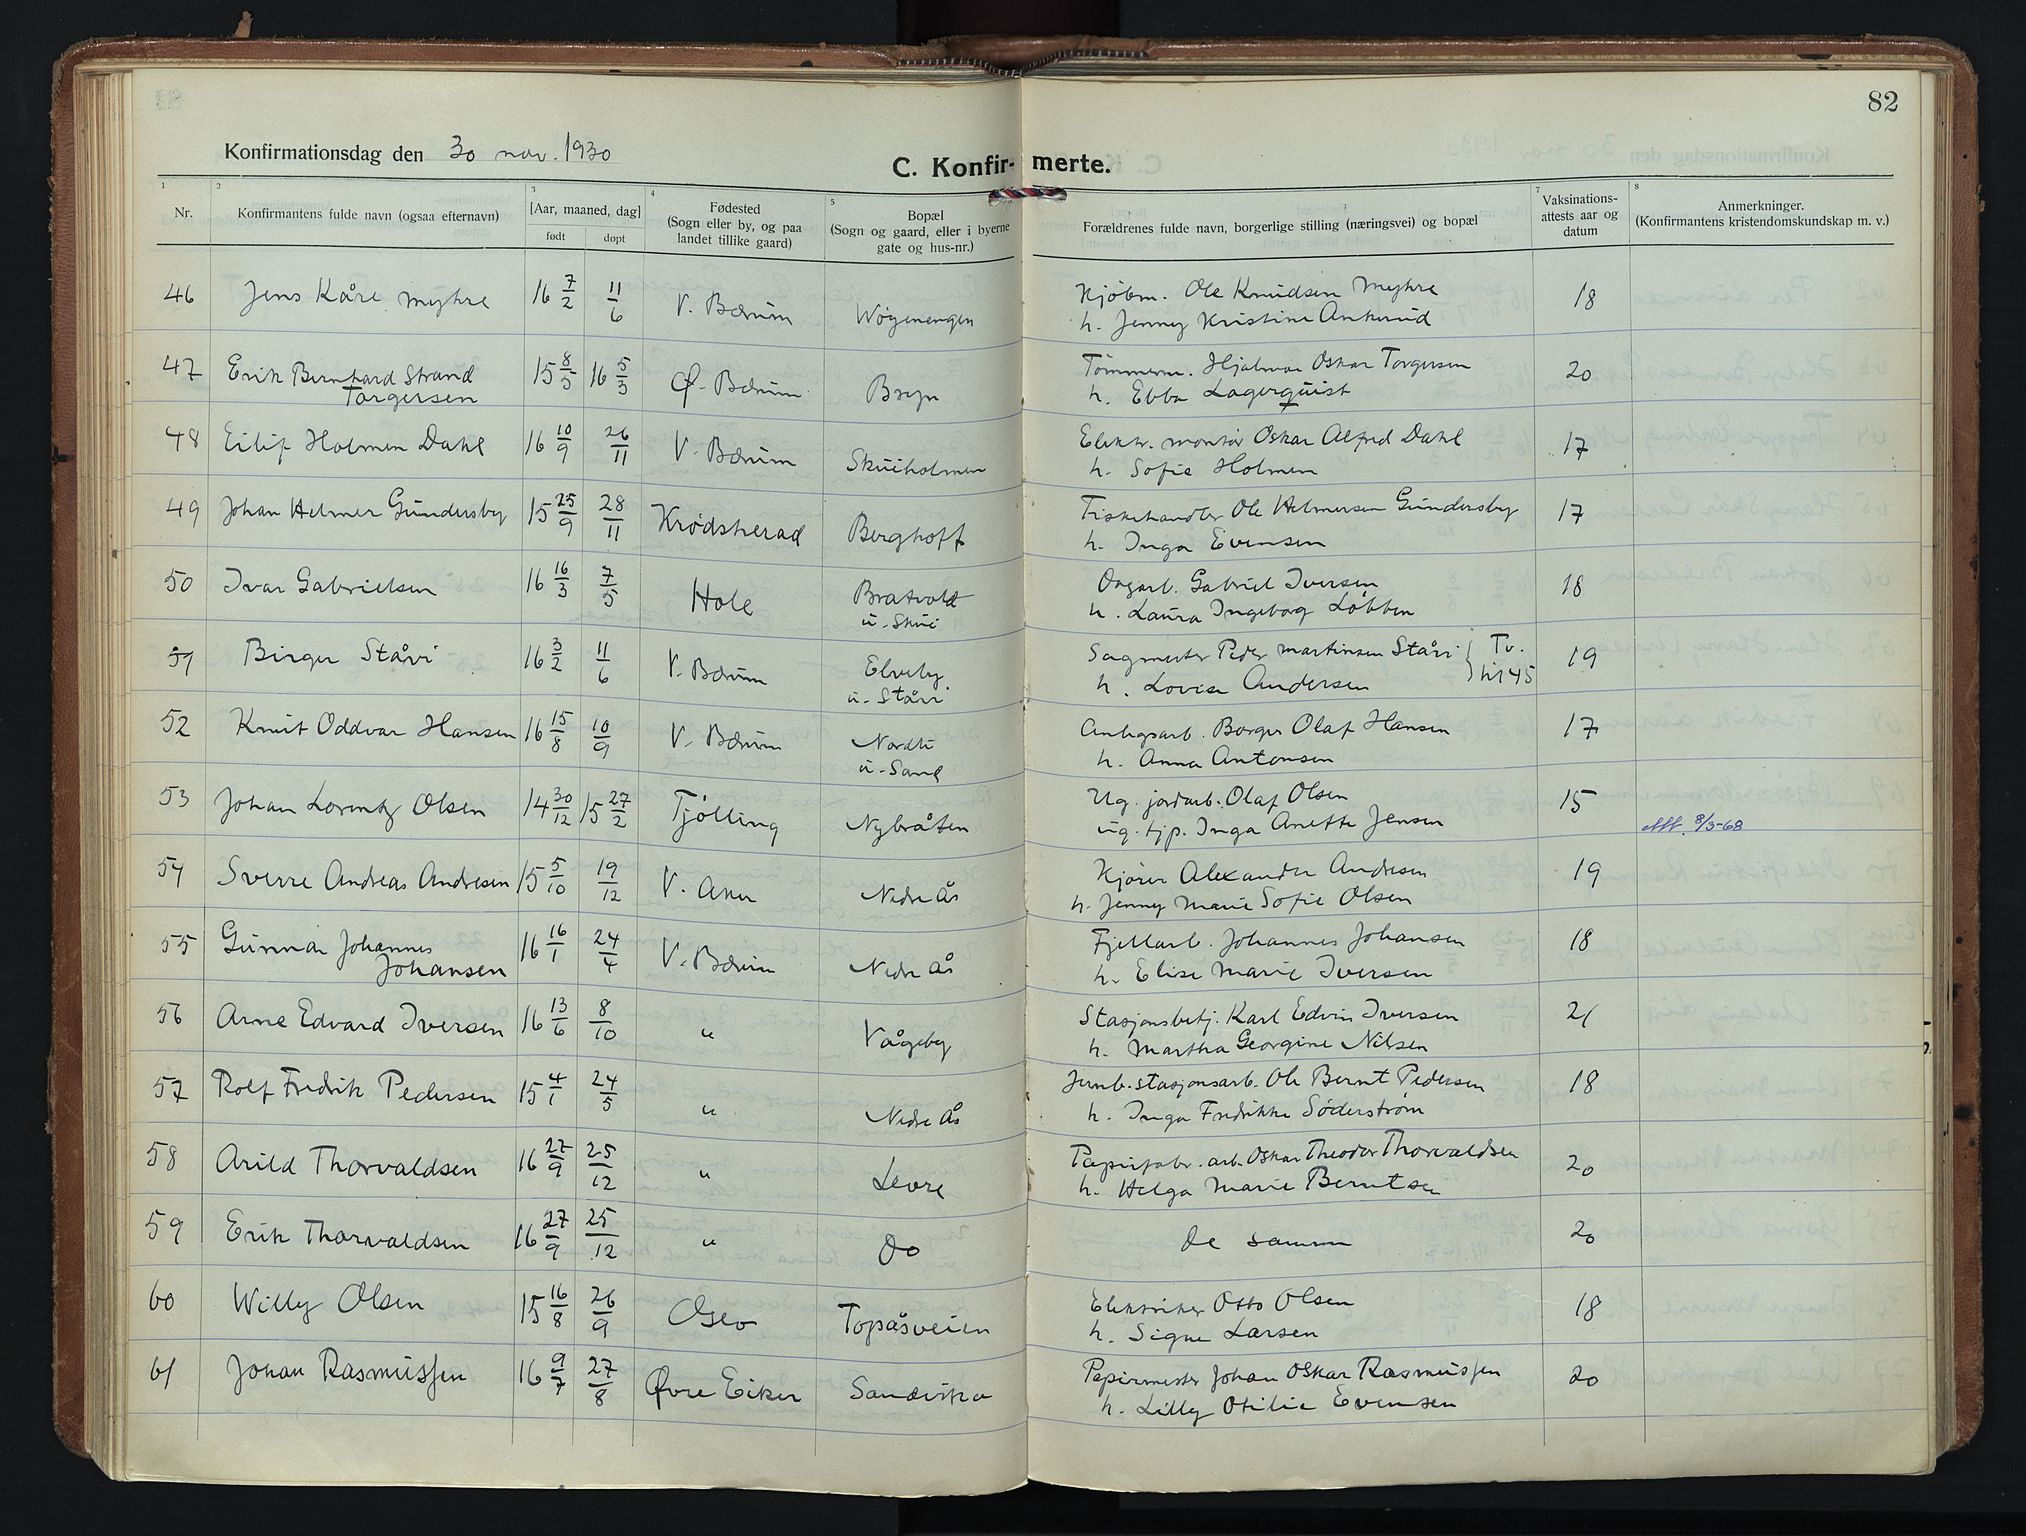 82
Konfirmationsdag den 30 nov. 1930
C. Konfir- merte.
1 2 3 4 5 7 8
Nr. Konfirmantens fulde navn (ogsaa efternavn) [Aar, maaned, dag] født døpt Fødested (Sogn eller by, og paa landet tillike gaard) Bopæl (Sogn og gaard, eller i byerne gate og hus-nr.) Forældrenes fulde navn, borgerlige stilling (næringsvei) og bopæl Vaksinations-attests aar og datum Anmerkninger. (Konfirmantens kristendomskundskap m. v.)
46 Jens Kåre Myhre 16 7/2 11/6 V. Bærum Wøyenengen Kjøbm. Ole Knudsen Myhre 18
h. Jenny Kristine Ankerud
47 Erik Bernhard Strand 15 8/5 16 5/3 Ø. Bærum Bryn Tømmerm. Hjalmar Oskar Torgersen 20
Torgersen h. Ebba Lagerquist
48 Eilif Holmen Dahl 16 10/9 26/11 V. Bærum Skuiholmen Elektr. montør Oskar Alfred Dahl 17
h. Sofie Holmen
49 Johan Helmer Gundersby 15 25/9 28/11 Krødsherad Berghoff Fiskehandler Ole Helmersen Gundersby 17
h. Inga Evensen
50 Ivar Gabrielsen 16 16/3 7/5 Hole Bratvold Dagarb. Gabriel Iversen 18
u. Skui h. Laura Ingeborg Løbben
51 Birger Ståvi 16 3/2 11/6 V. Bærum Elveby Sagmester Peder Martinsen Ståvi } Tv. 19
u. Ståvi h. Lovise Andersen til 45
52 Knut Oddvar Hansen 16 15/8 10/9 V. Bærum Nordli Anlegsarb. Borger Olaf Hansen 17
u. Sand h. Anna Antonsen
53 Johan Lorentz Olsen 14 30/12 15 27/2 Tjølling Nybråten Ug. jordarb. Olaf Olsen 15
ug. tjp. Inga Anette Jensen Att. 8/3-68
54 Sverre Andreas Andresen 15 5/10 19/12 V. Aker Nedre Ås Kjører Alexander Andresen 19
h. Jenny Marie Sofie Olsen
55 Gunnar Johannes 16 16/1 24/4 V. Bærum Nedre Ås Fjellarb. Johannes Johansen 18
Johansen h. Elise Marie Iversen
56 Arne Edvard Iversen 16 13/6 8/10 " Vågeby Stasjonsbetj. Karl Edvin Iversen 21
h. Martha Georgine Nilsen
57 Rolf Fredrik Pedersen 15 4/1 24/5 " Nedre Ås Jernb. stasjonsarb. Ole Bernt Pedersen 18
h. Inga Fredrikke Søderstrøm
58 Arild Thorvaldsen 16 27/9 25/12 " Levre Papirfabr. arb. Oskar Theodor Thorvaldsen 20
h. Helga Marie Berntsen
59 Erik Thorvaldsen 16 27/9 25/12 " Do De samme 20
60 Willy Olsen 15 16/8 26/9 Oslo Topåsveien Elektriker Otto Olsen 18
h. Signe Larsen
61 Johan Rasmussen 16 9/7 27/8 Øvre Eiker Sandvika Papirmester Johan Oskar Rasmussen 20
h. Lilly Otilie Evensen